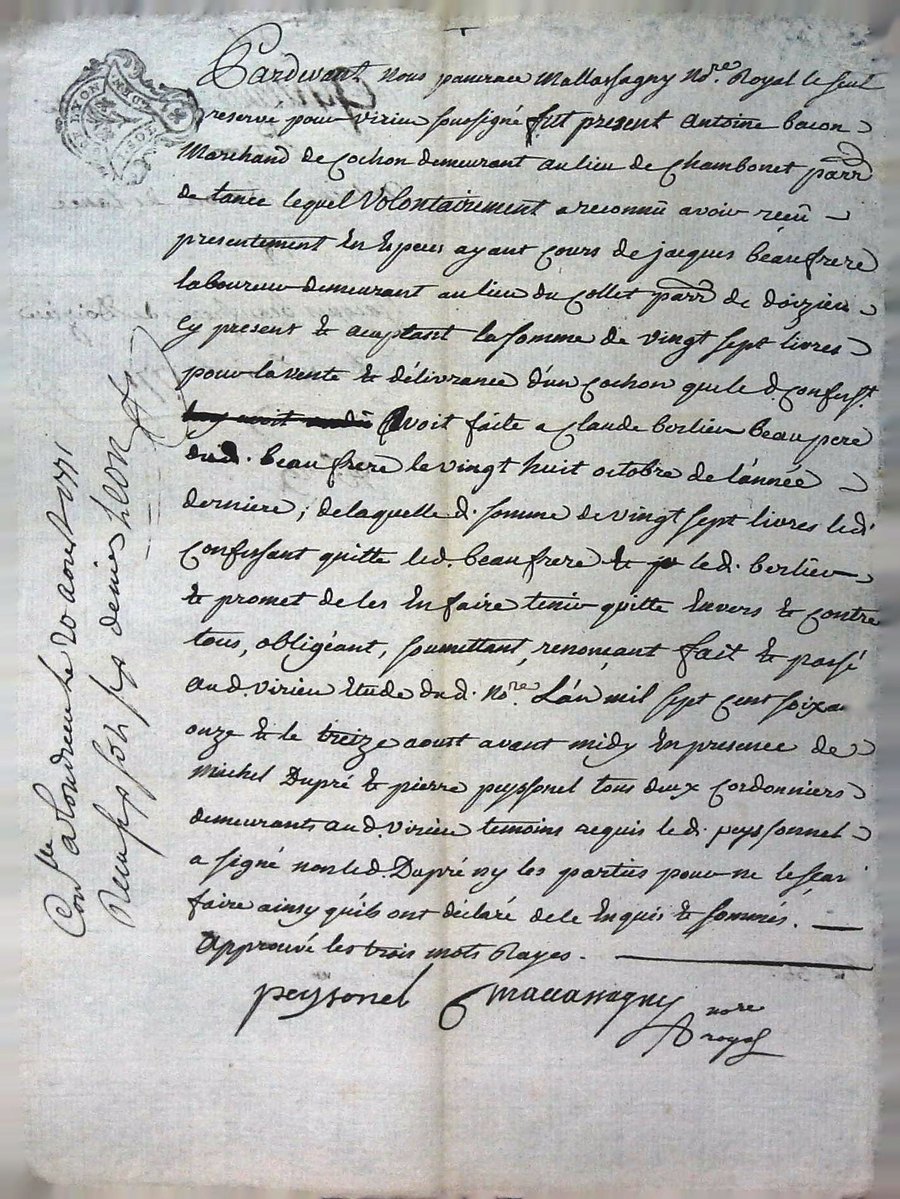 Pardevant Nous pancrace Mallassagny No.re Royal le seul
reservé pour virieu soussigné fut present Antoine bacon
Marchand de Cochon demeurant au lieu de Chambonet parr
de tance lequel Volontairement a reconnû avoir reçû
presentement En Especes ayant cours de jacques beaufrere
laboureur demeurant au lieu du Collet parr de doizieu
Cy present & acceptant la somme de vingt sept livres
pour la vente & délivrance d'un Cochon que le d. Confesst.
avoit faite a Claude berlieu beau pere
dud. beaufrere le vingt huit octobre de l'année
derniere; de laquelle d. somme de vingt sept livres led.
Confessant quitte led. beaufrere & led. berlieu
& promet de les En faire tenir quitte Envers & Contre
tous, obligéant, soumettant, renonçant fait & passé
aud virieu Etude dud. No.re L'an mil sept cent soixa
onze & le treize aoust avant midy En presence de
Michel Dupré & pierre peyssonel tous deux Cordonniers
demeurants aud virieu temoins requis led. peyssonnel
a signé non led. Dupré ny les parties pour ne le sçav
faire ainsy qu'ils ont déclaré de ce Enquis & sommés.
approuvé les trois mots Rayes.
peyssonel Mallassagny
nore
royal
Con.lle a Condrieu le 20 aoust 1771
Reçu sols deniers